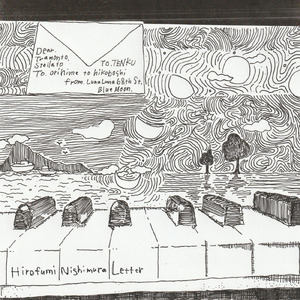 Dear
Tramonto,
Stellato
To. orihime to hikoboshi
from Luna Luna 68th St.
Blue Moon.
To. TENKU
Hirofumi Nishimura Letter